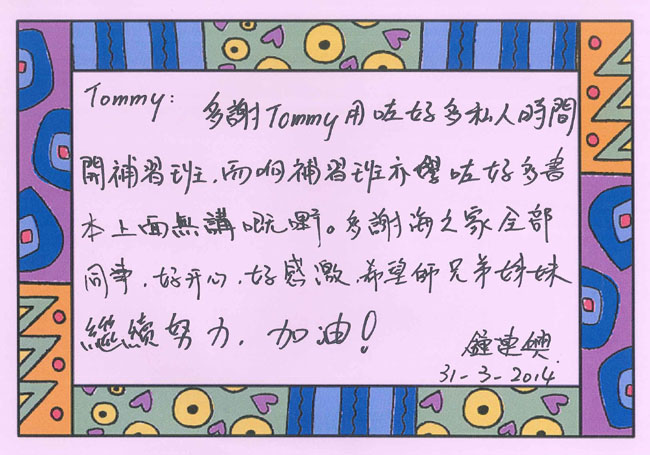 Tommy:
多謝Tommy用咗好多私人時間
開補習班,而响補習班亦學咗好多書
本上面無講嘅嘢。多謝海之家全部
同事,好开心,好感激,希望師兄弟姊妹
繼續努力,加油!
鍾連
31-3-2014